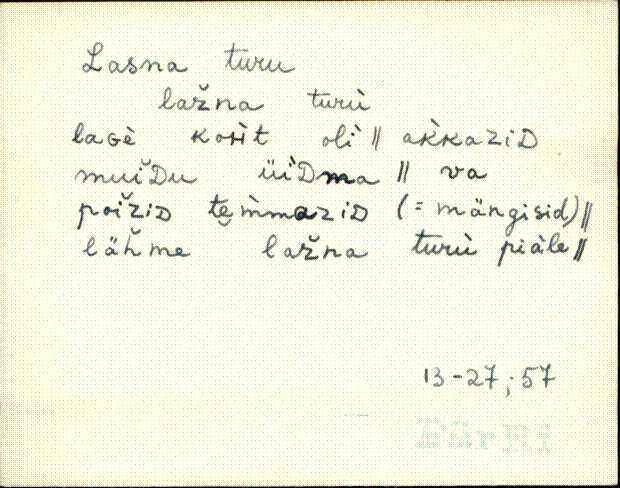 Lasna turu
lažna turù
laGè koh̀t olì || ak̀kaziD
muižDu üìDma || va
poižziD tem̀maziD (= mängisid) ||
läȟme lažna turù piàle ||
13-27; 57
PärRi